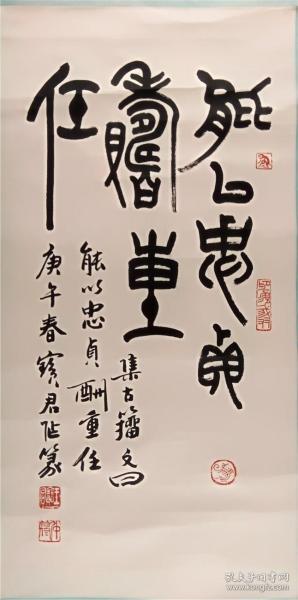 能以忠貞
酬重
任
集古籀文曰
能以忠貞酬重任
庚午春寶君作篆
孔夫子旧书网
kongfz.com